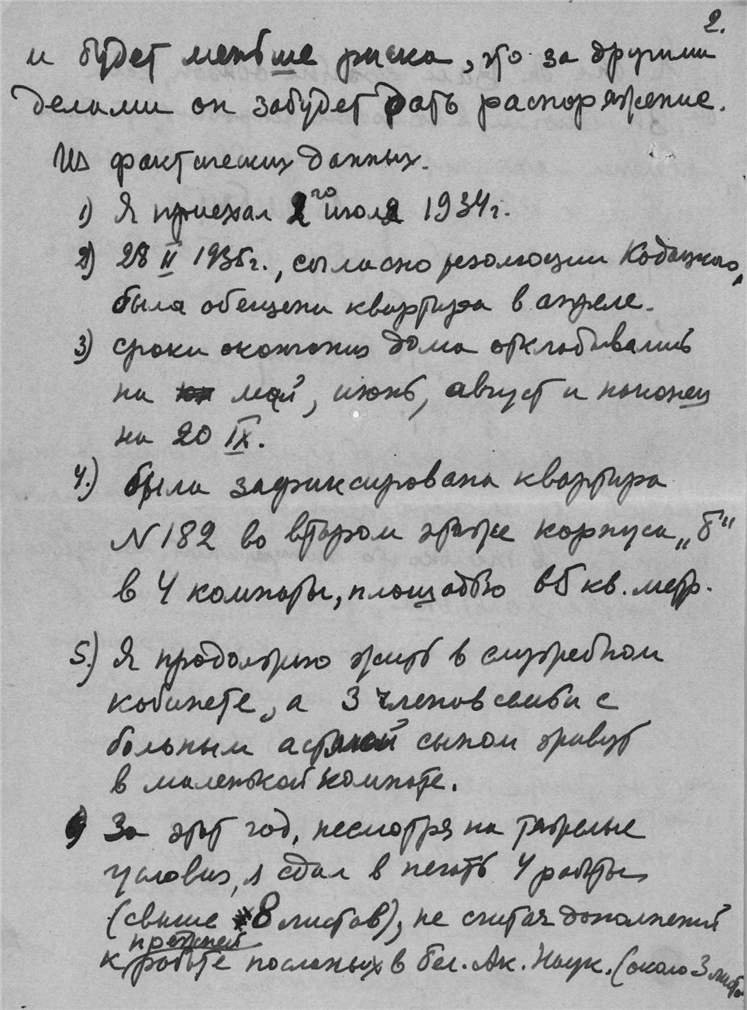 2.
и будет меньше риска, что за другими
делами он забудет дать распоряжение.
Из фактических данных.
1) Я приехал 2го июля 1934 г.
2) 28 II 1935 г., согласно резолюции Кодацкого,
была обещена квартира в апреле.
3) сроки окончания дома откладывались
на май, июнь, август и наконец
на 20 IX.
4.) была зафиксирована квартира
N 182 во втором этаже корпуса „б"
в 4 комнаты, площадью кв. метр.
5.) Я продолжаю жить в служебном
кабинете, а 3 членов семьи с
больным астмой сыном живут
в маленькой комнате.
6) За этот год, несмотря на тяжелые
условия, я сдал в печать 4 работы
(свыше 8 листов), не считая дополнений
к прежней работе посланных в бел. Ак. Наук. (около 3 листов